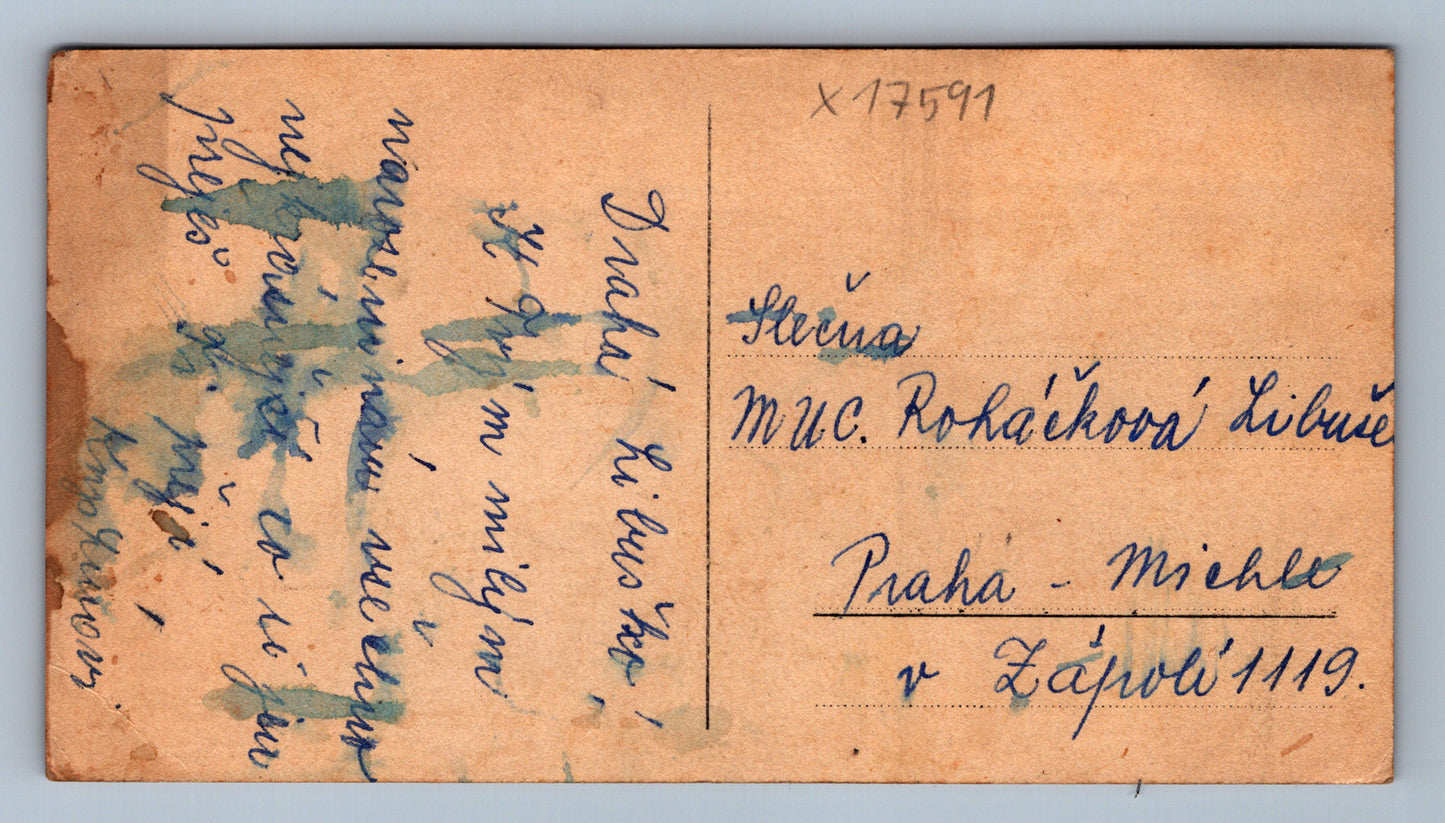 x 17591
Drahá Libuško!
K Tvým milým
narozeninám všechno
nejkrásnější co si jen
přeješ Ti přejí
Slečna
MUC. Roháčková Libuše
Praha - Michle
v Zápolí 1119.